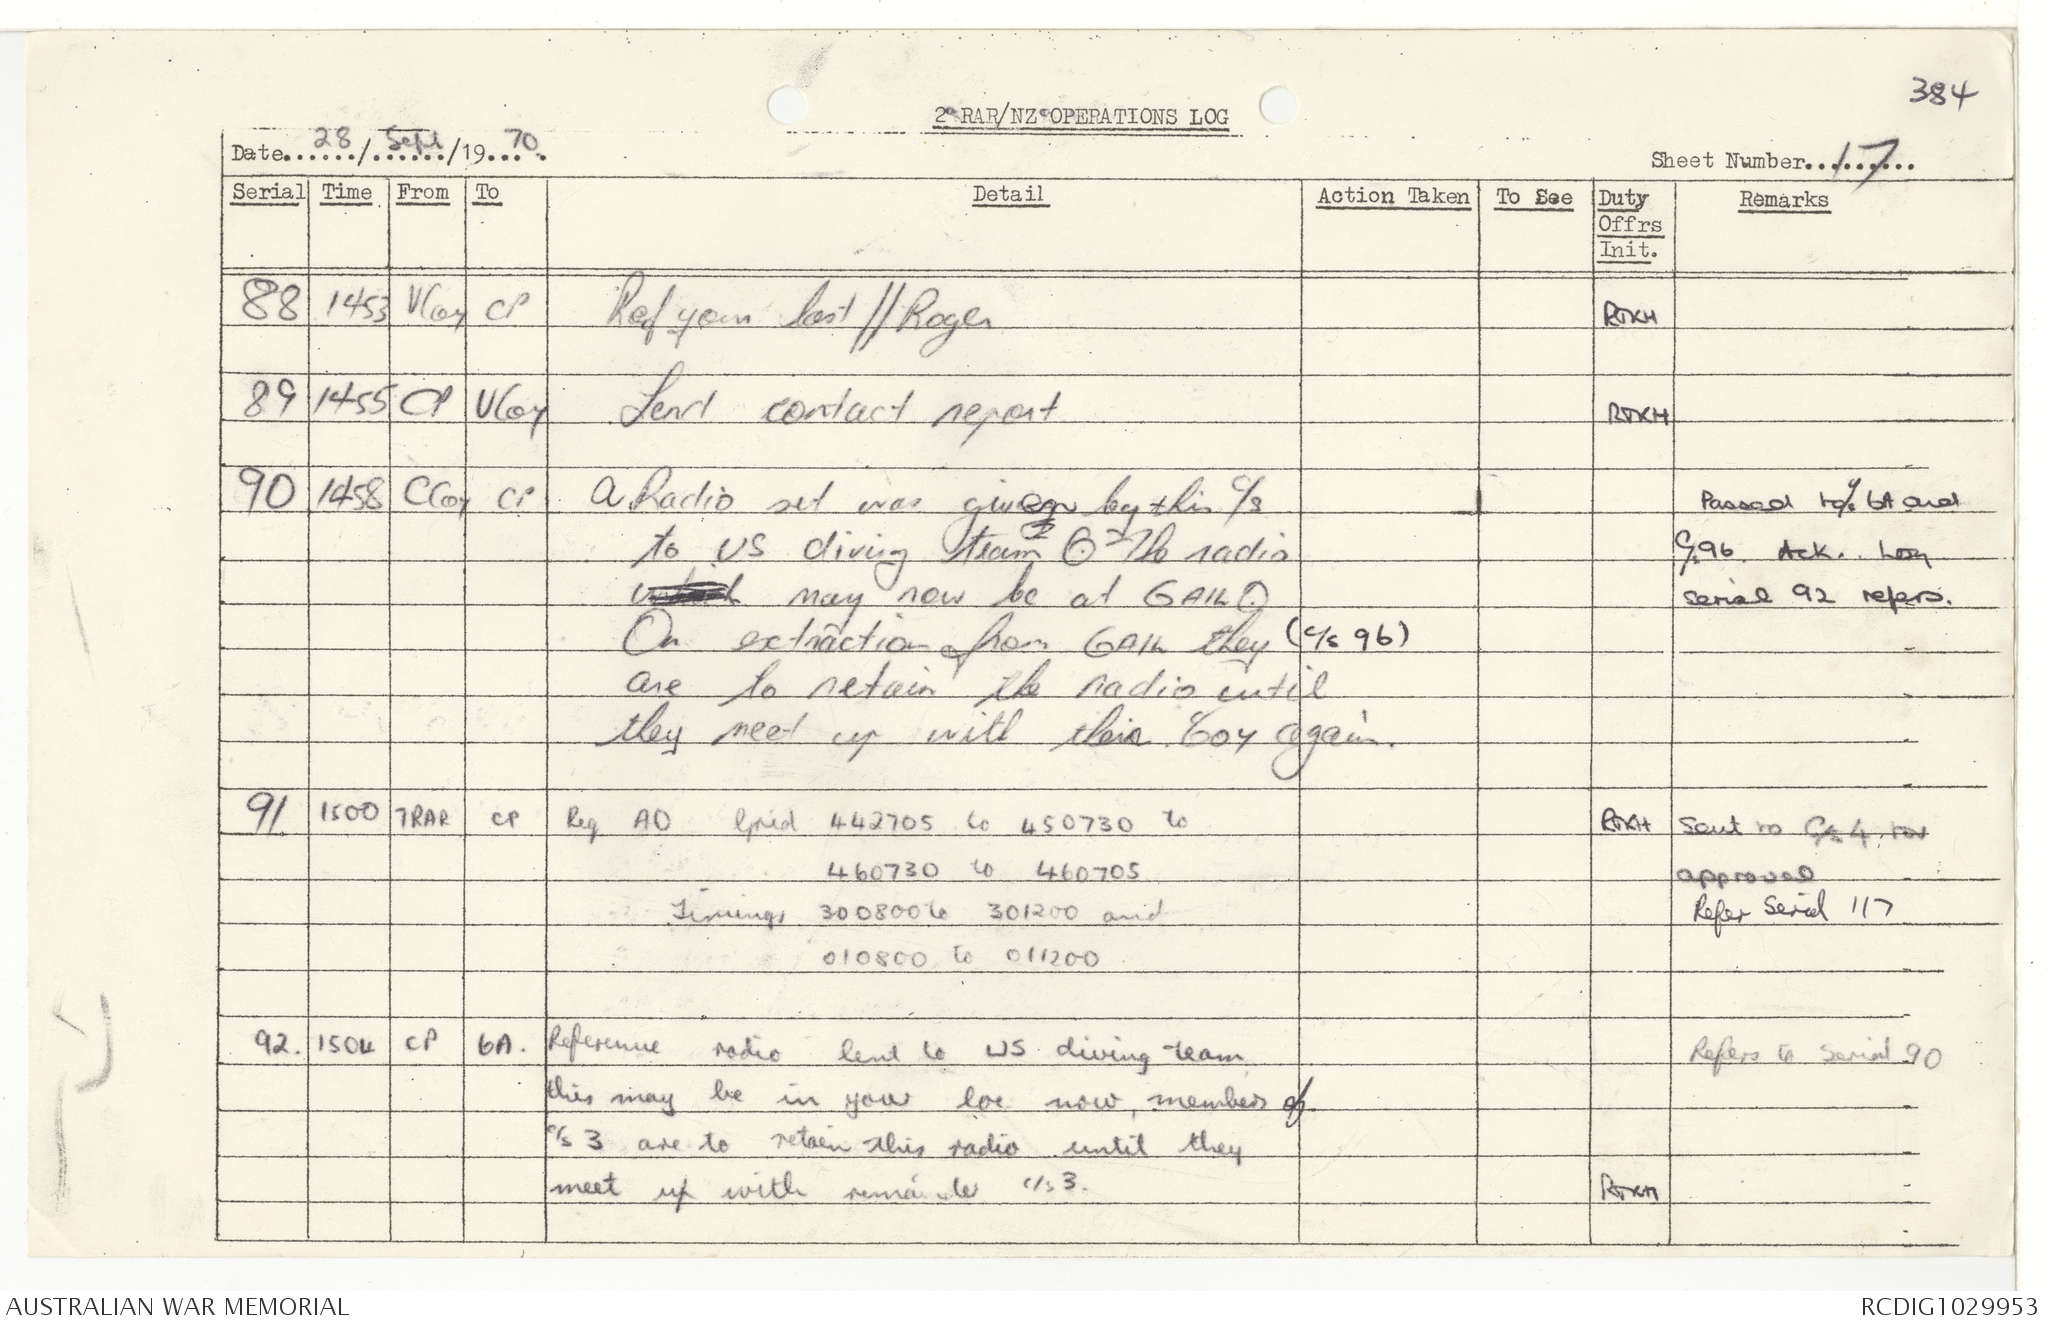 384
2 RAR/NZ OPERATIONS LOG
Date...28.../Sept/19...70.
Sheet Number...17...
Serial Time From To Detail Action Taken To See Duty Offrs Init. Remarks
88 1453 VCoy CP Ref your last // Roger RTKH
89 1455 CP VCoy Send contact report RTKH
90 1458 CCoy CP A Radio set was given by this c/s Passed to c/s 6A and
to US diving team. The radio c/s 96 Ack. Log
may now be at GAIL. serial 92 refers.
On extraction from GAIL they (c/s 96)
are to retain the radio until
they meet up with their Coy again.
91 1500 7RAR CP Req AO Grid 442705 to 450730 to RTKH Sent to C/s 4 for
460730 to 460705 approval
Timings 300800 to 301200 and Refer Serial 117
010800 to 011200
92. 1504 CP 6A. Reference radio lent to US diving team Refers to Serial 90
this may be in your loc now, members of
c/s 3 are to retain this radio until they
meet up with remainder c/s 3. RTKH
AUSTRALIAN WAR MEMORIAL RCDIG1029953